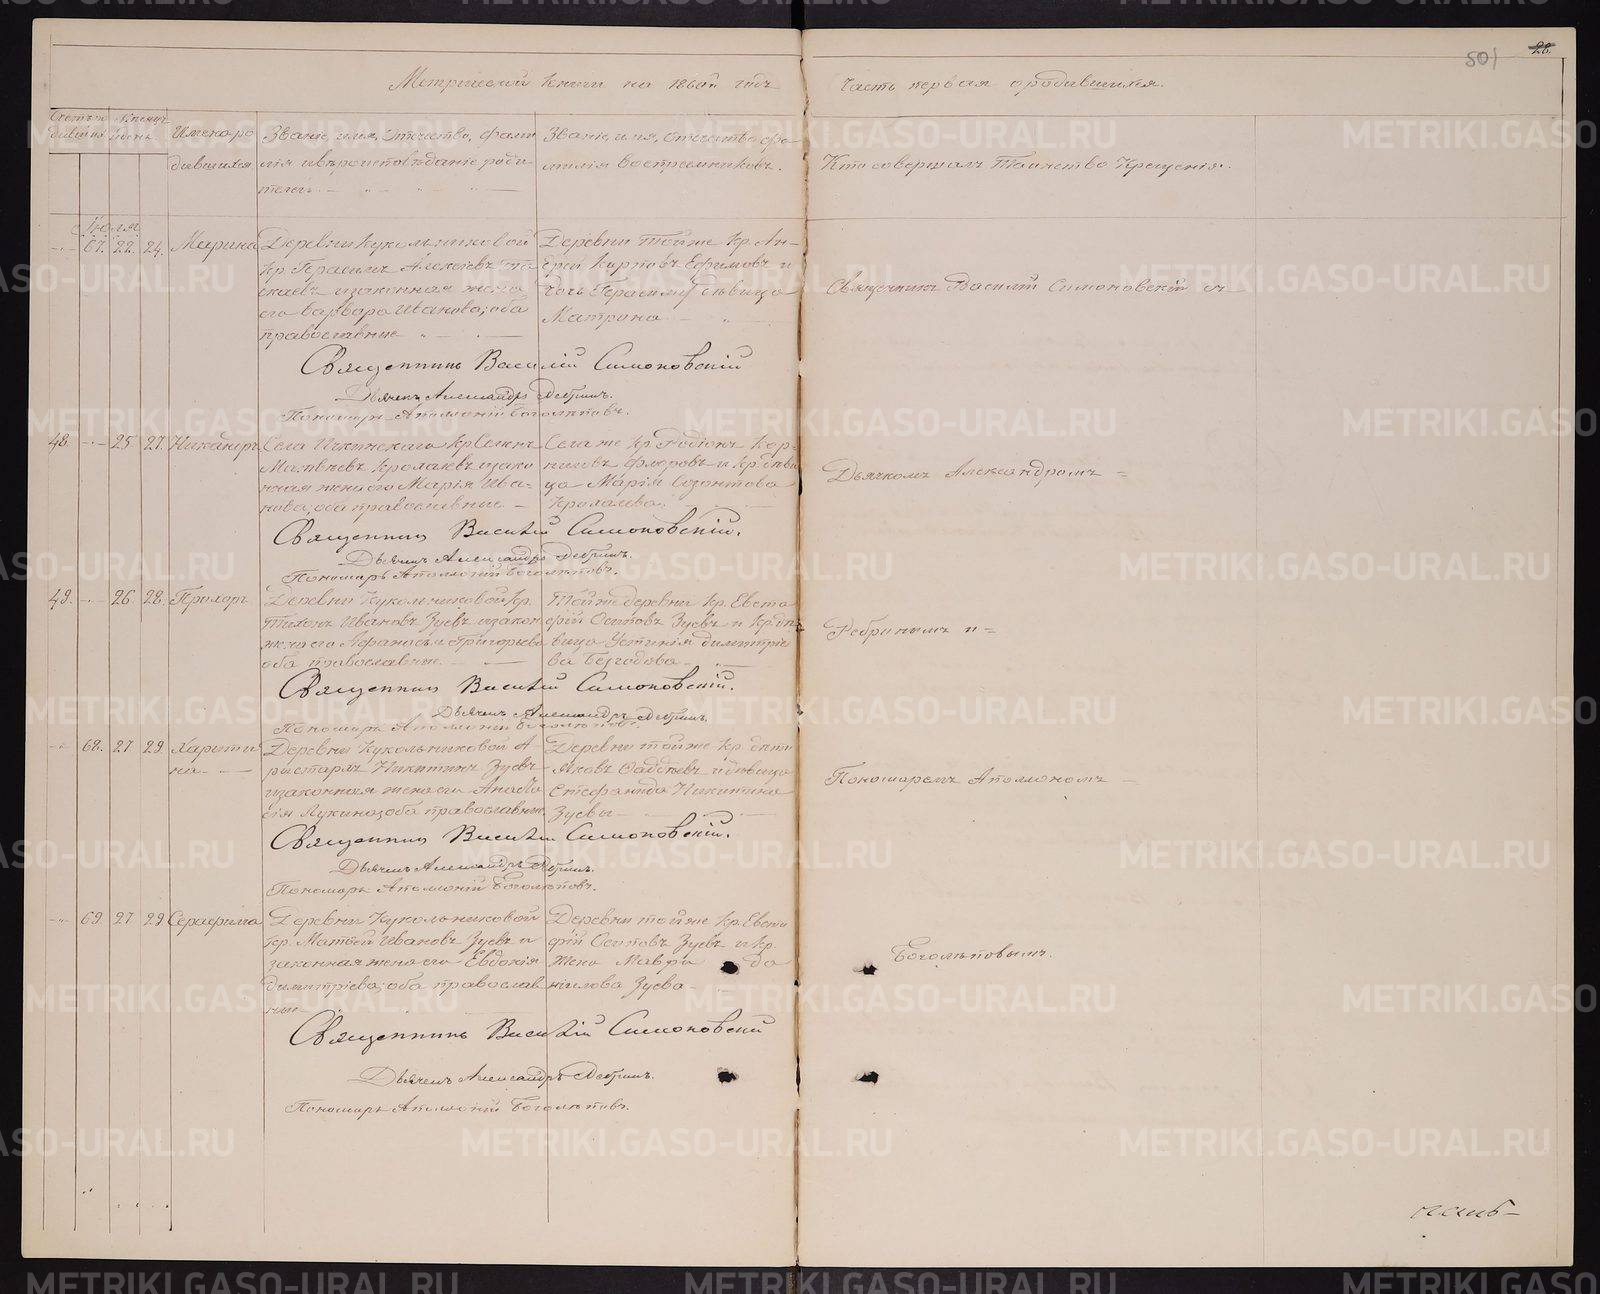 501
28.
Метрической книги на 1860й годъ
Часть первая о родившихся.
Имена ро
дившихся
Званіе, имя, отчество, фами
лія и вѣроисповѣданіе роди
телей.
Званіе, имя, отчество, фа
милія воспріемниковъ.
Кто совершалъ Таинство Крещенія.
Іюля
67. 22. 24. Марина
Деревни Кукольниковой
кр. Герасимъ Алексѣевъ
законная жена
его Варвара Иванова; оба
православные
Деревни тойже кр. Ан-
дрей Карповъ Ефимовъ и
дочь Герасима дѣвица
Матрона
Священникъ Василій Симоновскій съ
Священникъ Василій Симоновскій
Дьячекъ Александръ Ребринъ.
Пономарь Аполоній Боголѣповъ.
48. 25 27. Никаноръ
Села Иткинскаго кр.
Матвѣевъ Кролаевъ и зако
нная жена его Марія Ива-
нова, оба православные
Села же кр. Родіонъ Кор-
ниловъ Флоровъ и кр. дѣви
ца Марія Созонтова
Кролаева.
Дьячкомъ Александромъ =
Священникъ Василій Симоновскій.
Дьячекъ Александръ Ребринъ.
Пономарь Аполоній Боголѣповъ.
49. 26. 28. Прохоръ
Деревни Кукольниковой кр.
Тихонъ Ивановъ Зуевъ и закон
жена его Афанасья Григорьева
оба православные.
Тойже деревни кр. Евста
фій Осиповъ Зуевъ и кр. дѣ
вица Устинія Димитріе
ва Безгодова
Ребринымъ и =
Священникъ Василій Симоновскій.
Дьячекъ Александръ Ребринъ.
Пономарь Аполоній Боголѣповъ.
68. 27 29. Харити
на
Деревни Кукольниковой А-
ристархъ Никитинъ Зуевъ
и законная жена его Анаста
сія Лукина; оба православные
Деревни тойже кр. дѣти
Яковъ Фаддѣевъ и дѣвица
Стефанида Никитина
Зуевы
Пономаремъ Аполономъ
Священникъ Василій Симоновскій.
Дьячекъ Александръ Ребринъ.
Пономарь Аполоній Боголѣповъ.
69. 27 29 Серафима
Деревни Кукольниковой
кр. Матвѣй Ивановъ Зуевъ и
законная жена его Евдокія
Димитріева; оба православ
ные
Деревни тойже кр. Евста
фій Осиповъ Зуевъ и кр.
жена Мавра Да
нилова Зуева
Боголѣповымъ.
Священникъ Василій Симоновскій
Дьячекъ Александръ Ребринъ.
Пономарь Аполоній Боголѣповъ.
METRIKI.GASO-URAL.RU